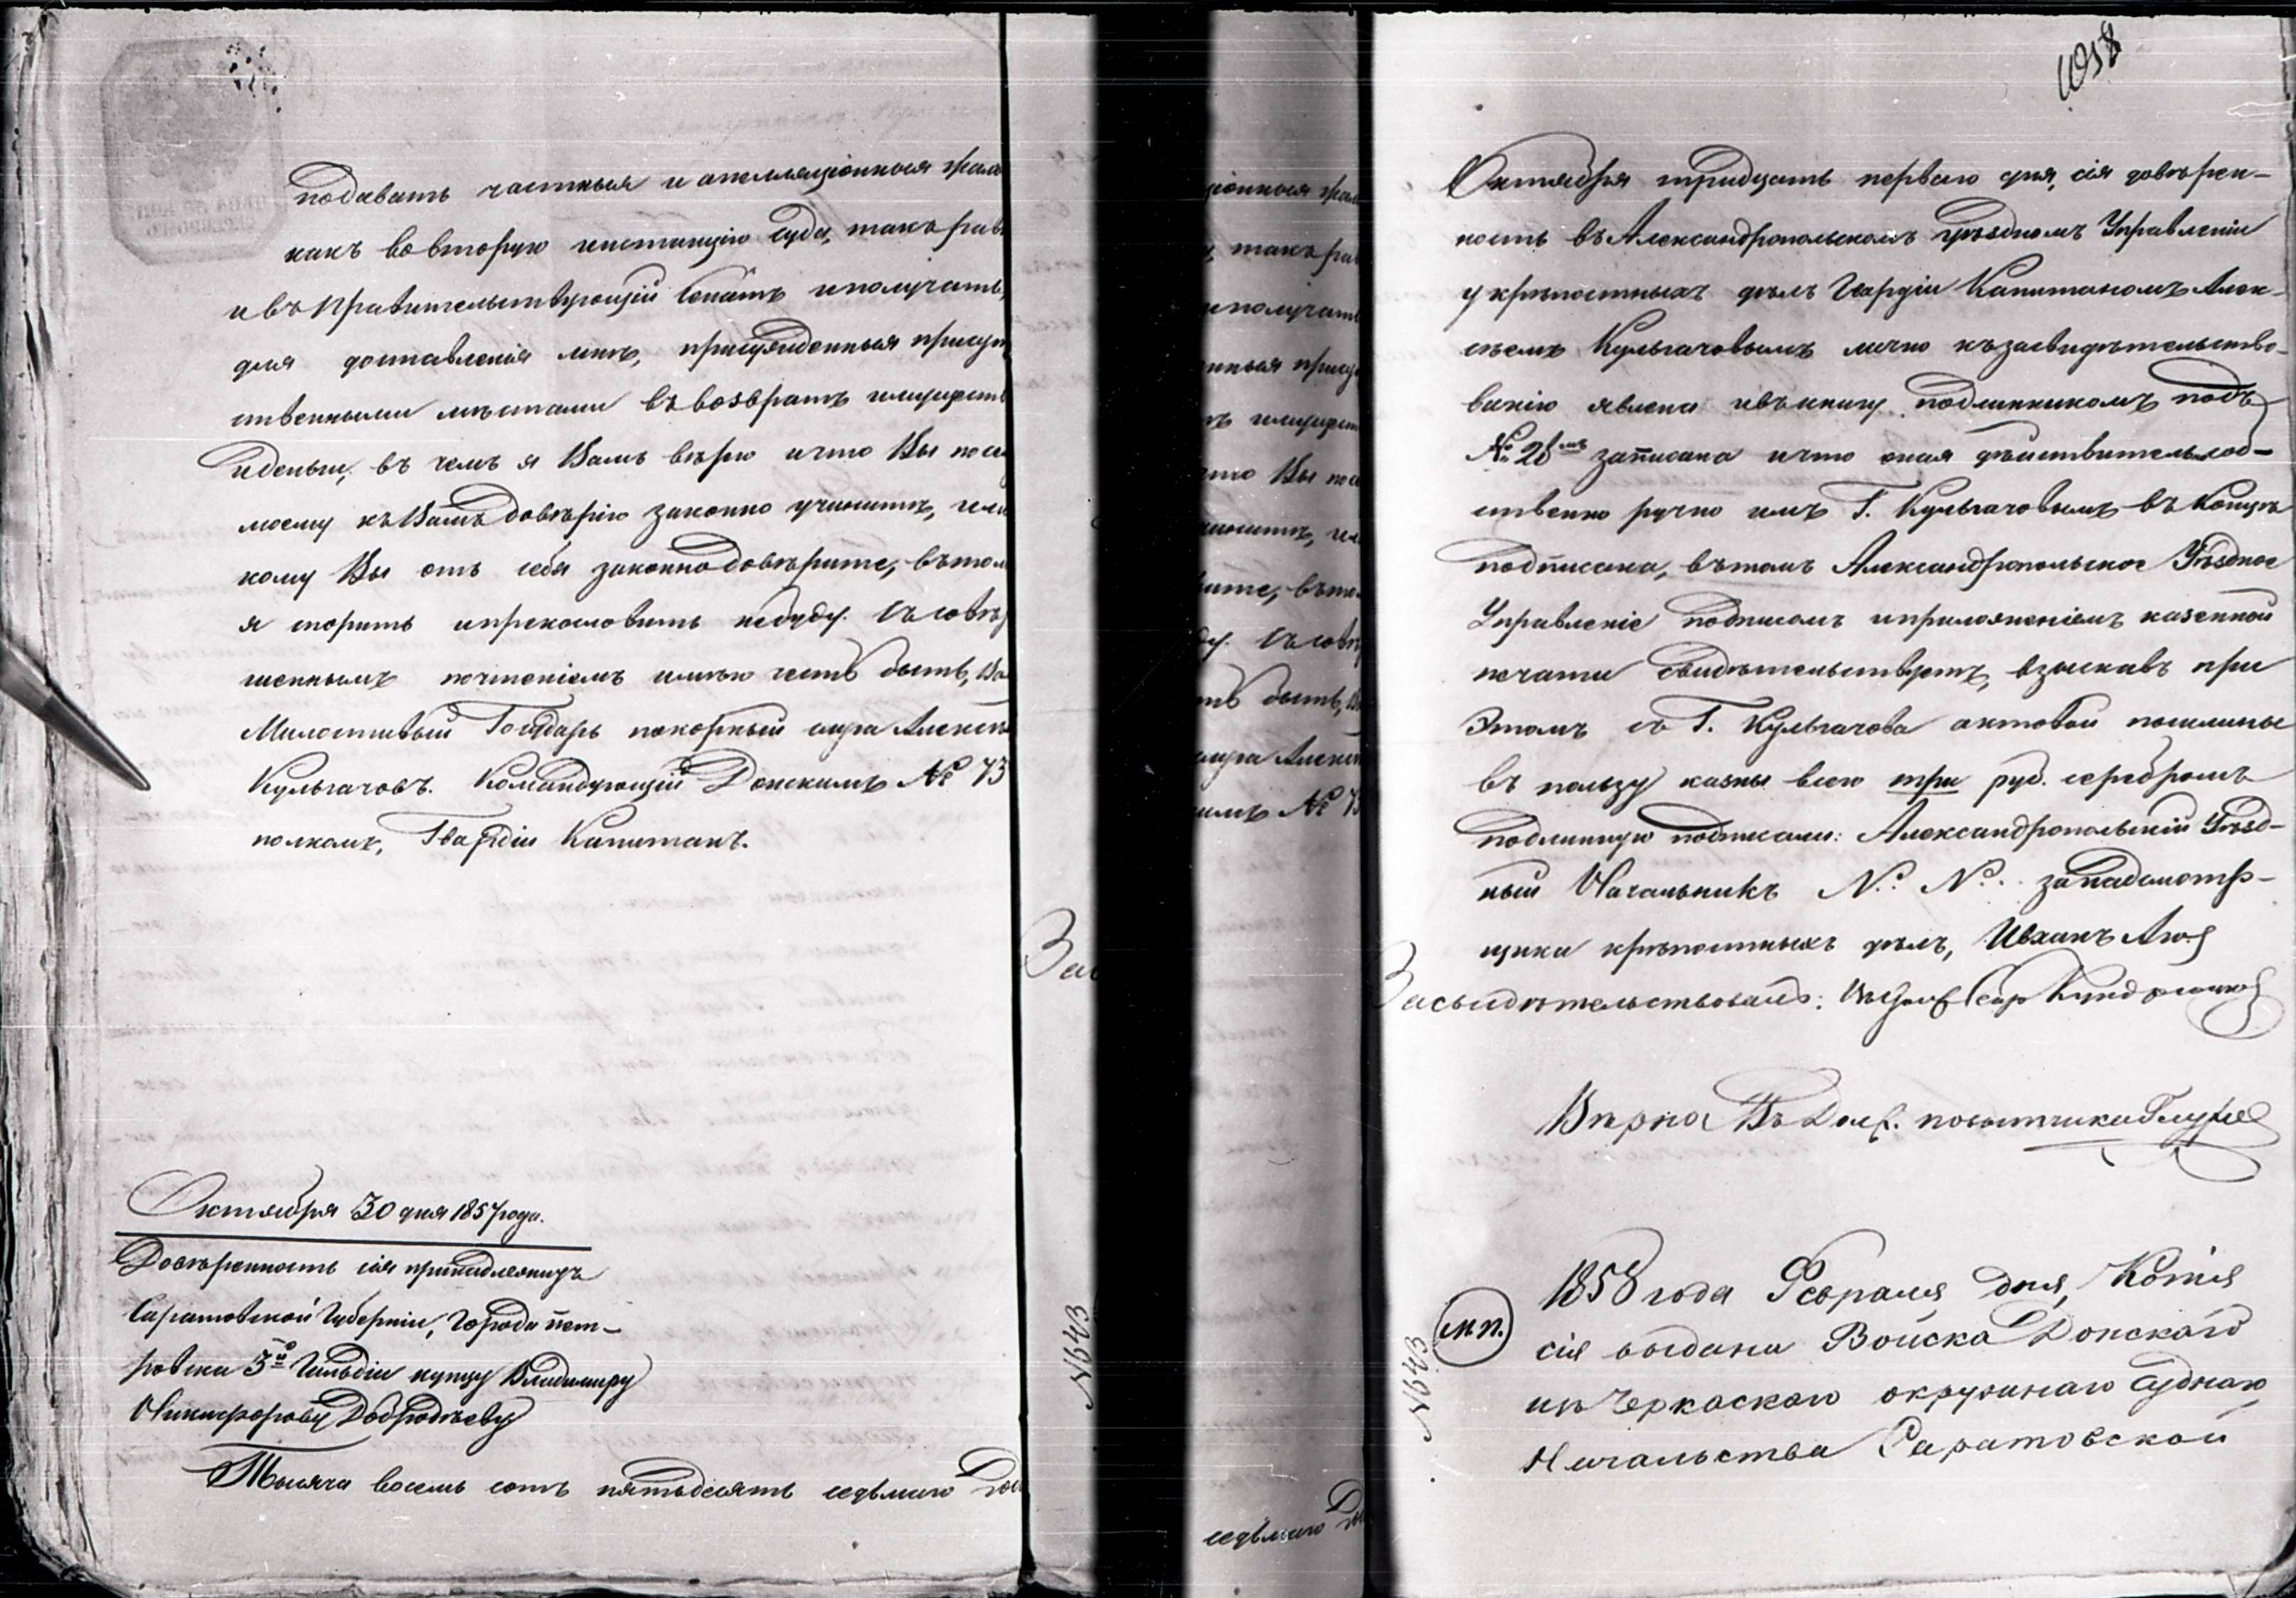 подавать частныя и апелляціонныя жало
какъ во вторую инстанцію суда, такъ рав
и въ Правительствующій Сенатъ и получать,
для доставленія мнѣ, присужденныя присут
ственными мѣстами въ возвратъ имущест
и деньги, въ чемъ я Вамъ вѣрю и что Вы по се
моему къ Вамъ довѣрію законно учините, или
кому Вы отъ себя законно довѣрите, въ том
я спорить и прекословить небуду. Съ совер
шеннымъ почтеніемъ имѣю честь быть, Ва
Милостивый Государь покорный слуга Алексѣ
Кульгачовъ. Командующій Донскимъ № 73
полкомъ, Гвардіи Капитанъ.
Октября 30 дня 1857 года.
Довѣренность сія принадлежитъ
Саратовской Губерніи, Города Пет-
ровска 3й Гильдіи купцу Владимиру
Никифорову Добродѣеву
Тысяча восемь сотъ пятьдесятъ седьмаго
Зас
№643
ціонныя жало
такъ рав
и получать
нныя присут
ъ имущест
что Вы по се
учините, или
рите, въ том
ду. Съ совер
ть быть, Ва
слуга Алексѣ
кимъ № 73
седьмаго
1058
Октября тридцать перваго дня, сія довѣрен-
ность въ Александропольскомъ Уѣздномъ Управленіи
у крѣпостныхъ дѣлъ Гвардіи Капитаномъ Алек-
сѣемъ Кульгачовымъ лично къ засвидѣтельство-
ванію явлена и въ книгу подлинникомъ подъ
№ 28мъ записана и что оная дѣйствительно соб-
ственно ручно имъ Г. Кульгачовымъ въ концѣ
подписана, въ томъ Александропольское Уѣздное
Управленіе подписомъ и приложеніемъ казенной
печати свидѣтельствуетъ, взыскавъ при
Этомъ съ Г. Кульгачова актовой пошлины
въ пользу казны всего три руб. серебромъ
Подлинную подписали: Александропольскій Уѣзд-
ный Начальникъ N. N. за надсмотр-
щика крѣпостныхъ дѣлъ, Иванъ
Засвидѣтельствовалъ:
Вѣрно Въ Долж. повытчика
1858 года Февраля дня, Копія
М.П.
сія выдана Войска Донскаго
изъ Черкаскаго окружнаго Суднаго
Начальства Саратовской
№643